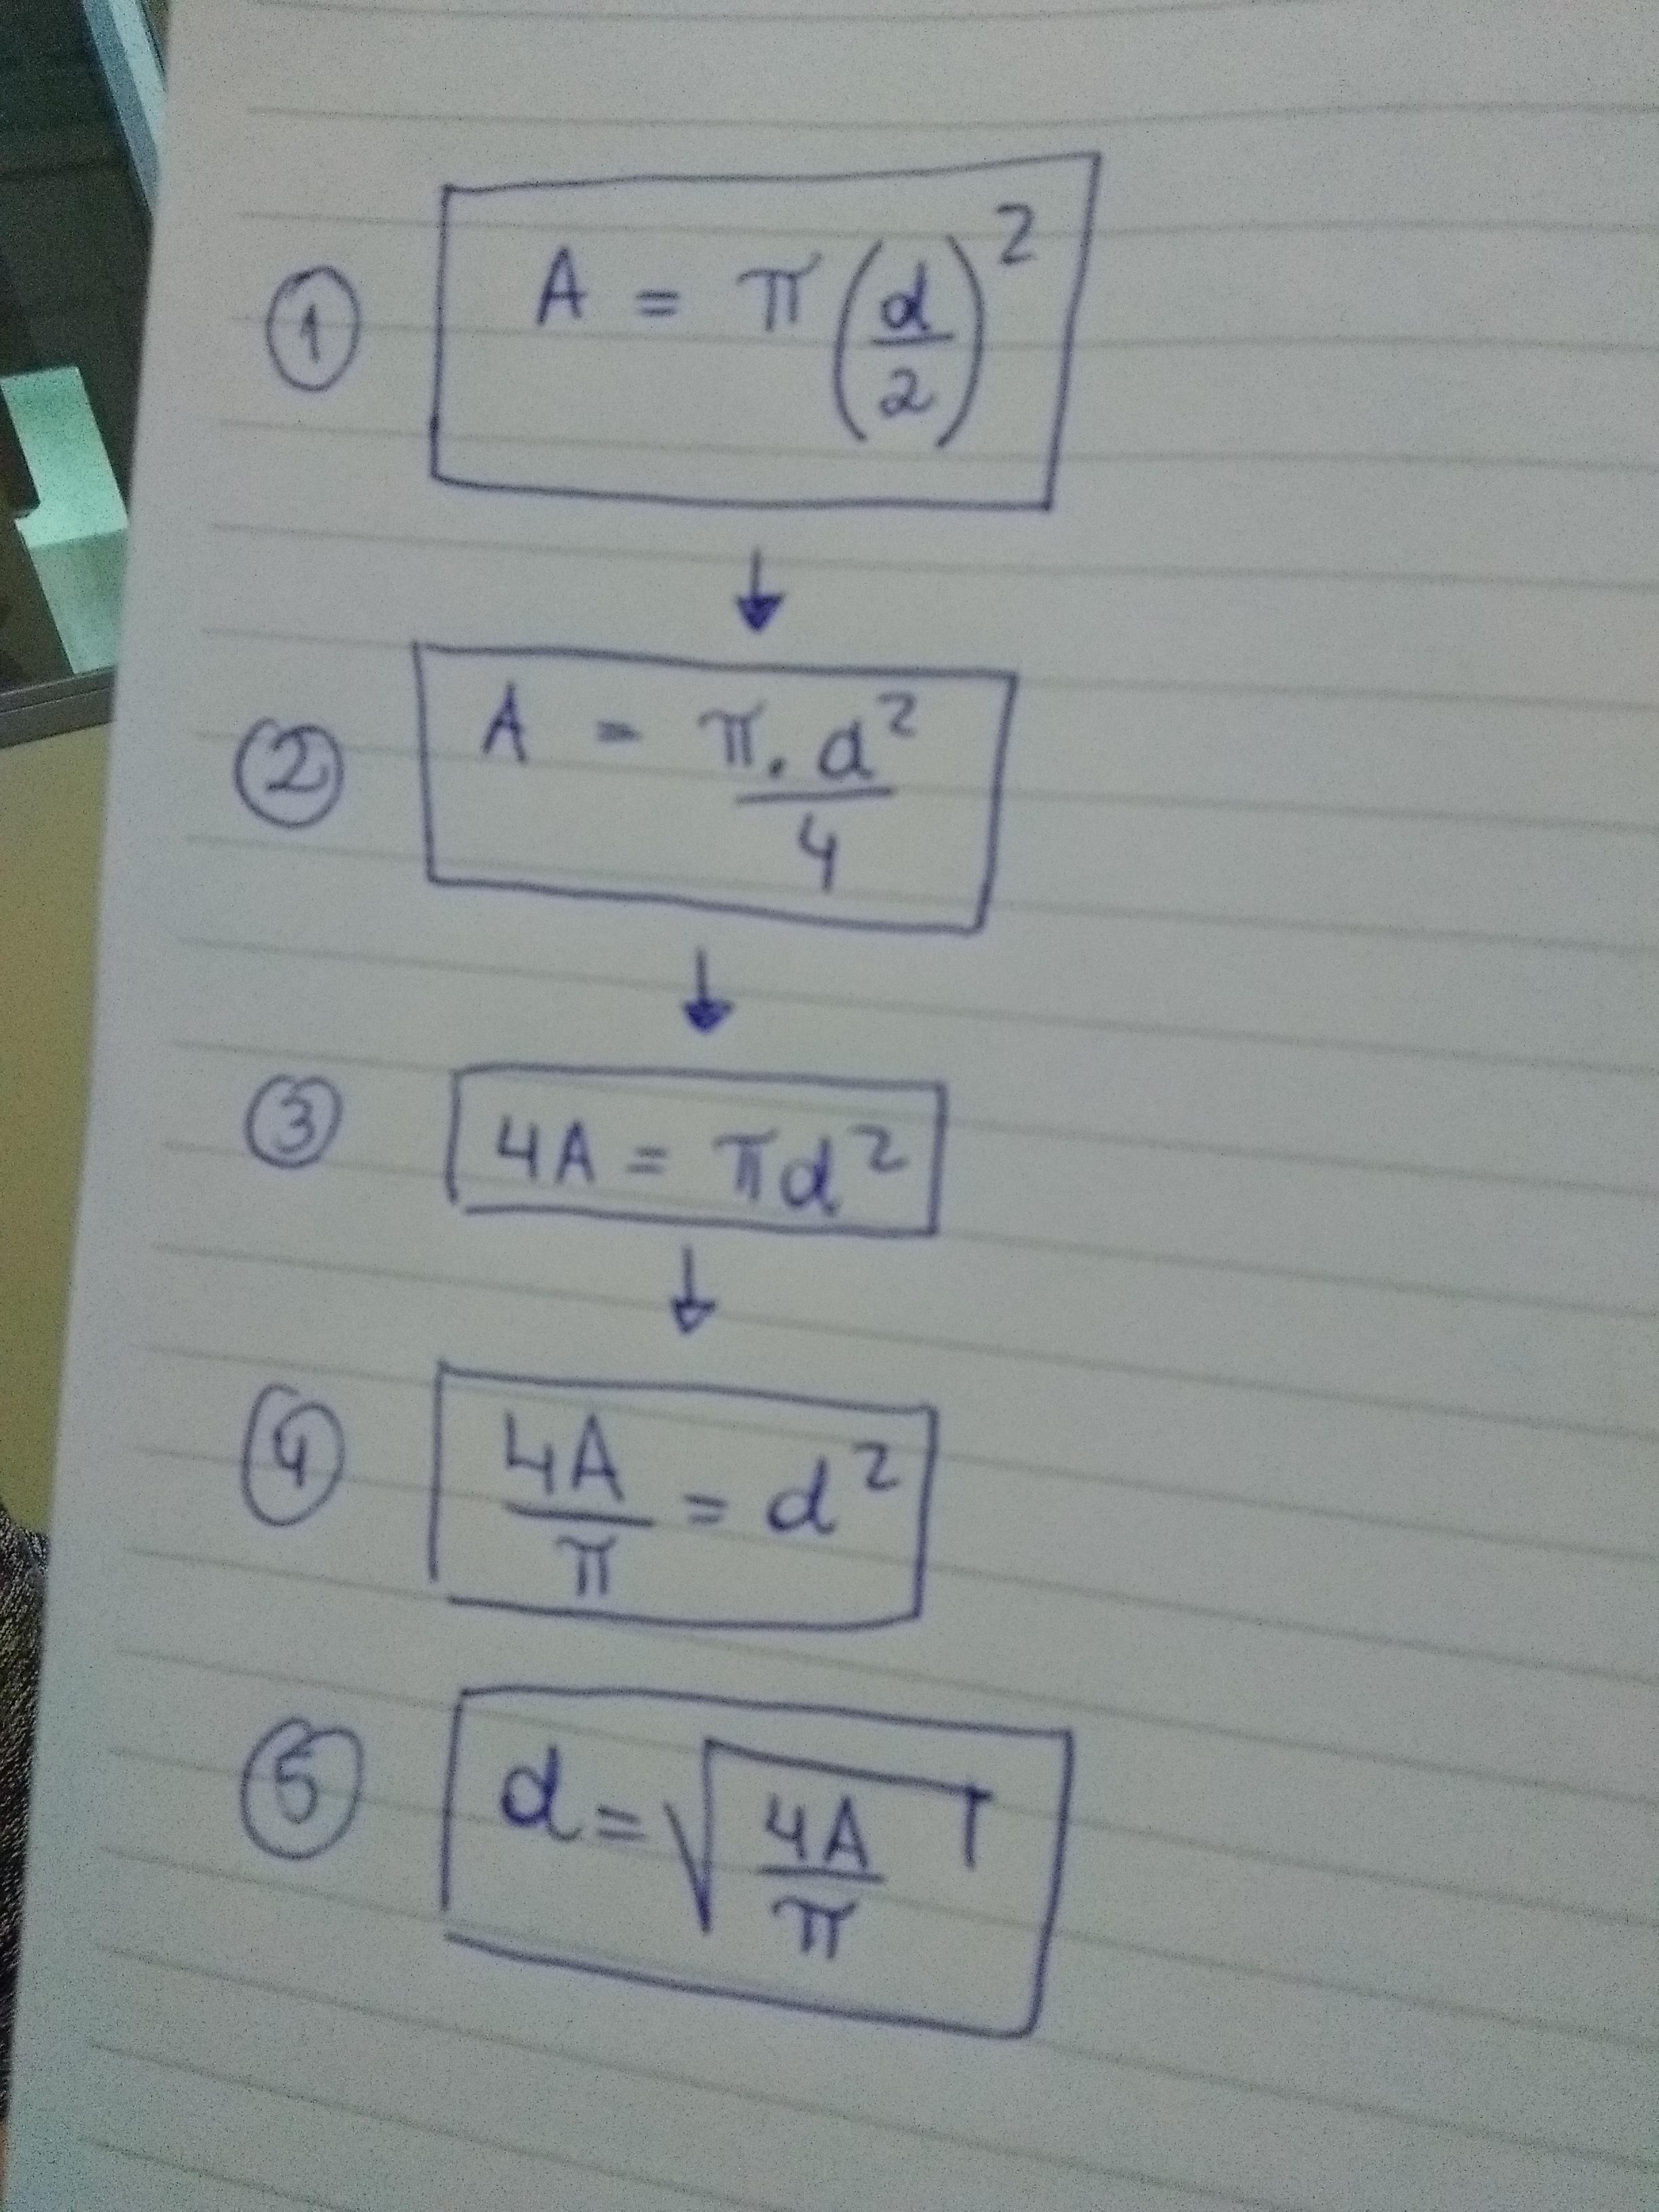 ① A = π(d/2)²
↓
② A = π.d²/4
↓
③ 4A = πd²
↓
④ 4A/π = d²
⑤ d = √(4A/π)